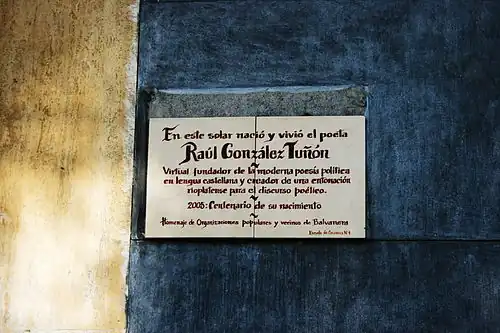 En este solar nació y vivió el poeta
Raúl González Tuñón
Virtual fundador de la moderna poesía política
en lengua castellana y creador de una entonación
rioplatense para el discurso poético.
~
2005: Centenario de su nacimiento
~
Homenaje de Organizaciones populares y vecinos de Balvanera
Escuela de Cerámica Nº1